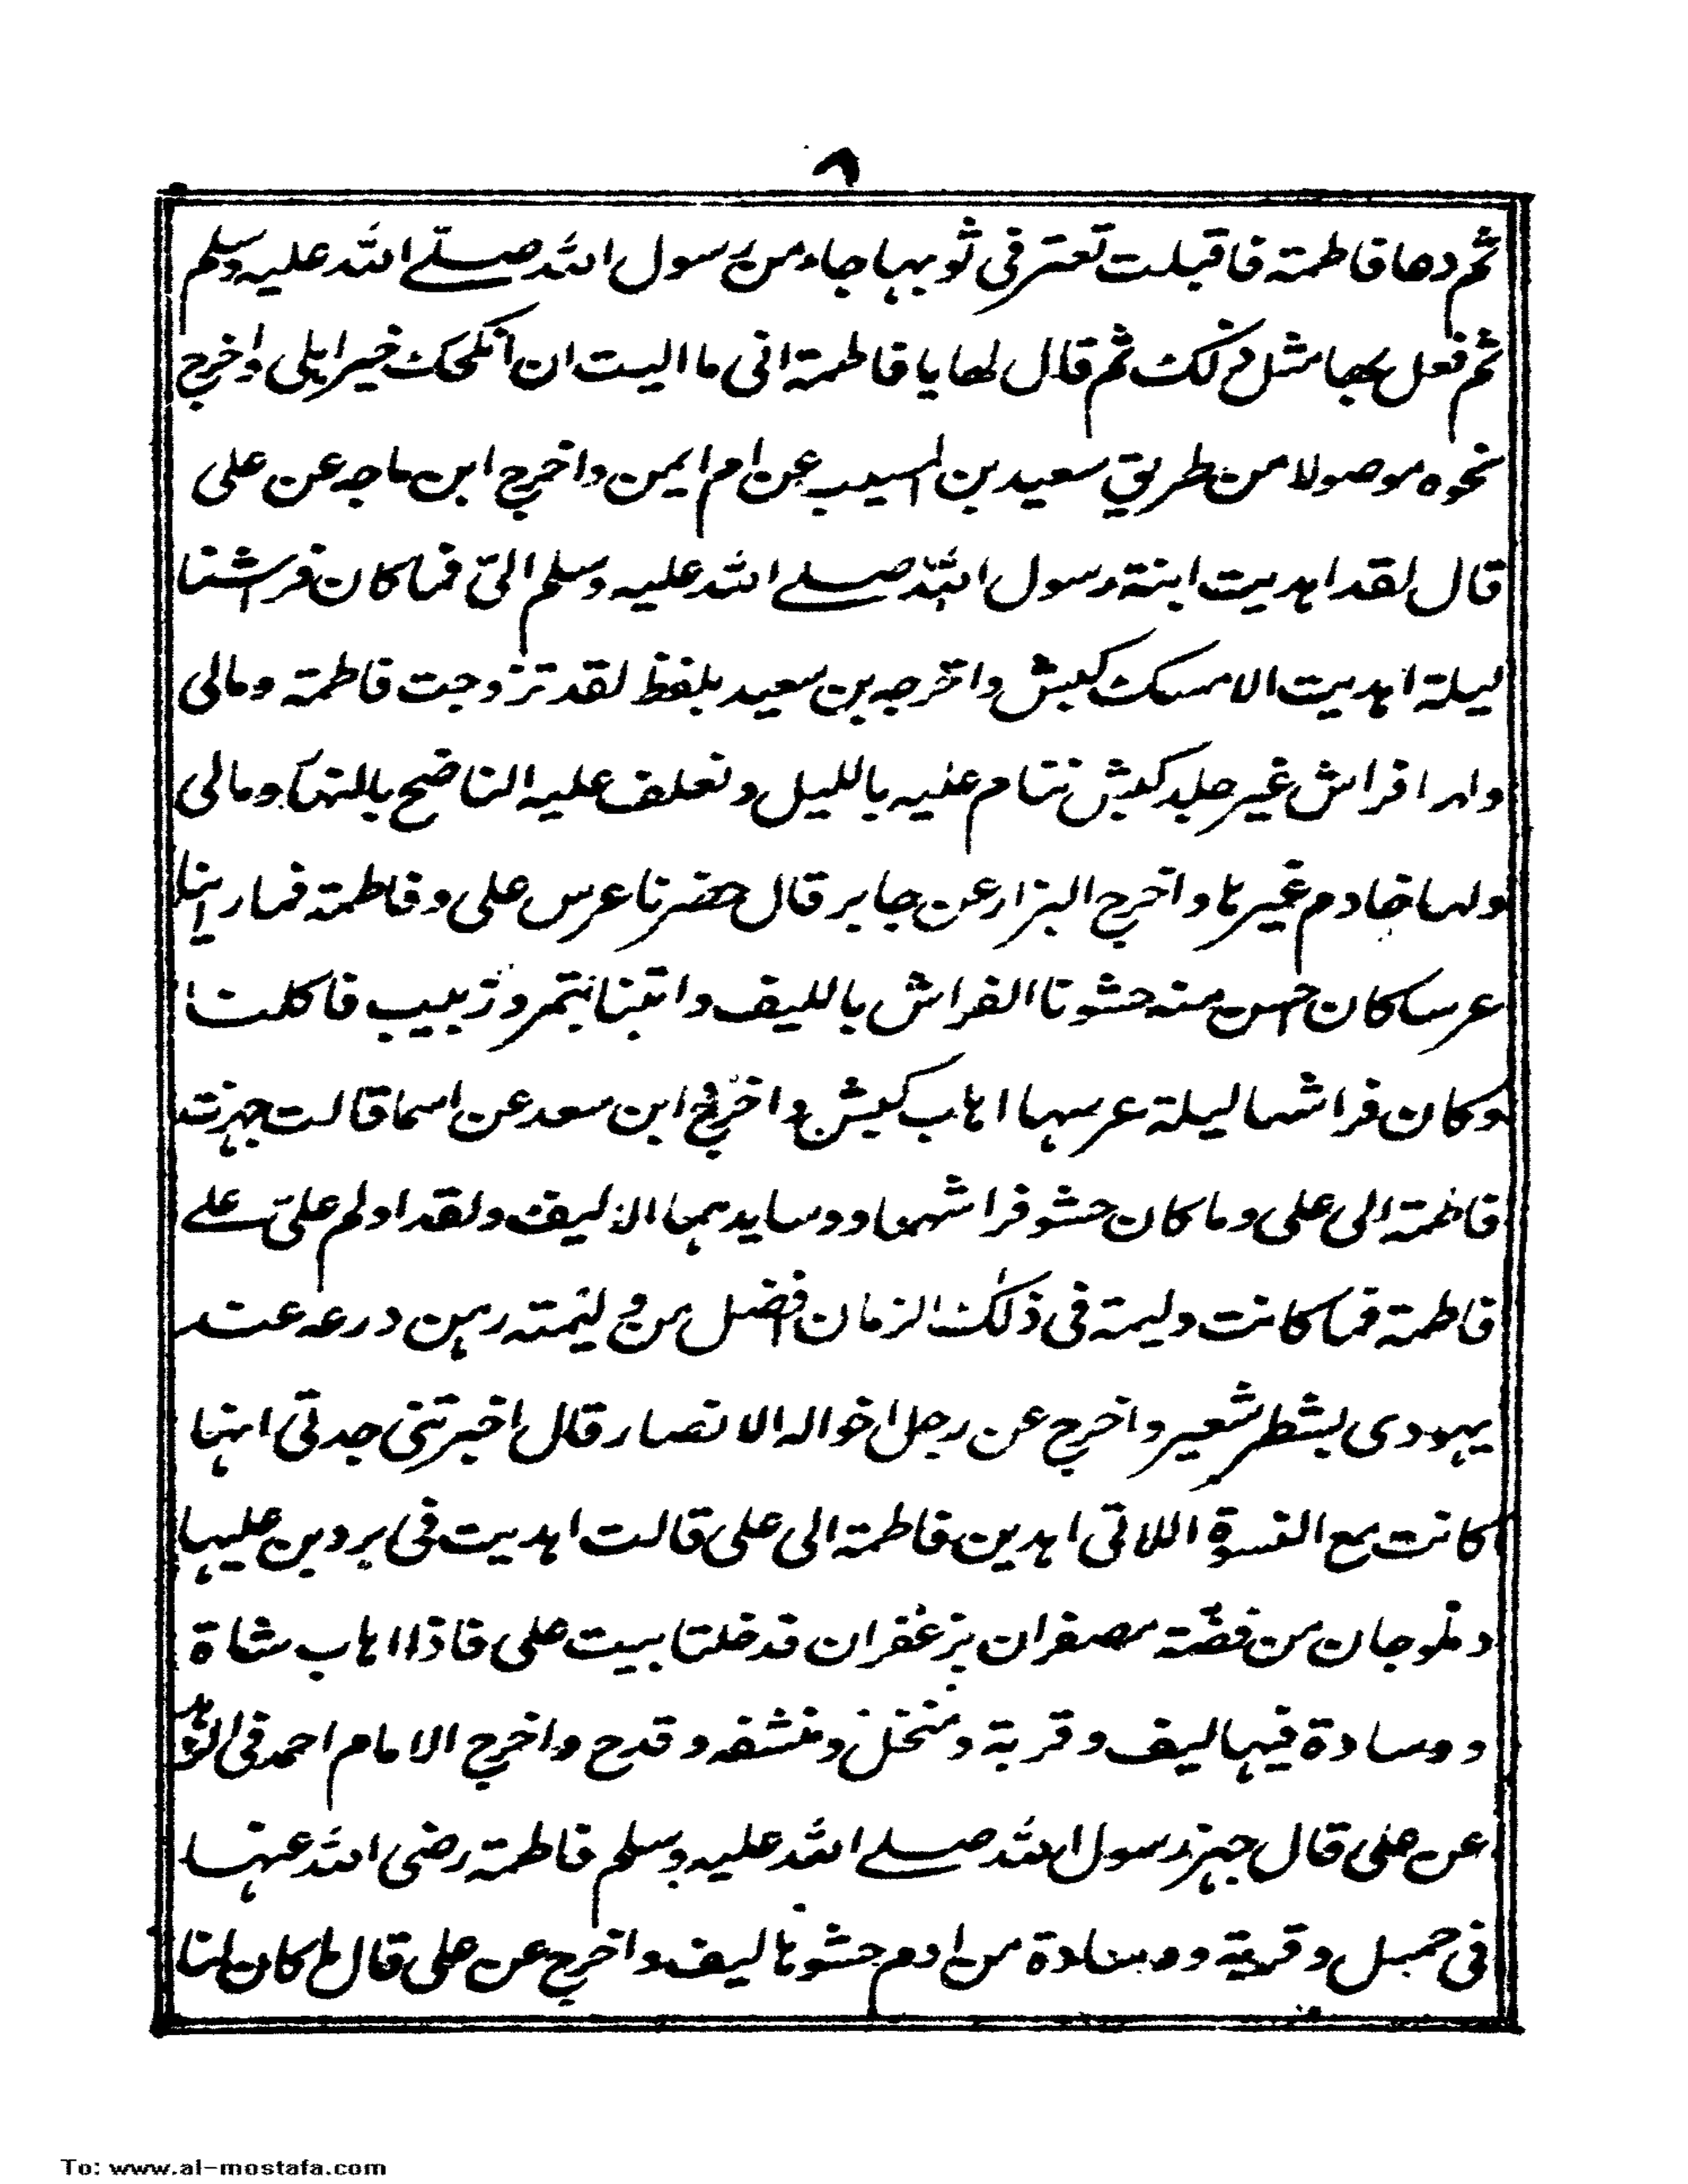 ٦
ثم دعا فاطمة فاقبلت تعثر فى ثوبها حياء من رسول الله صلى الله عليه وسلم
ثم فعل بها مثل ذلك ثم قال لها يا فاطمة انى ما اليت ان انكحك خير اهلى واخرج
نحوه موصولا من طريق سعيد بن المسيب عن ام ايمن واخرج ابن ماجه عن على
قال لقد اهديت ابنة رسول الله صلى الله عليه وسلم الىّ فما كان فرشنا
ليلة اهديت الا مسك كبش واخرجه بن سعيد بلفظ لقد تزوجت فاطمة ومالى
ولها فراش غير جلد كبش ننام عليه بالليل ونعلف عليه الناضح بالنهار ومالى
ولها خادم غيرها واخرج البزار عن جابر قال حضرنا عرس على وفاطمة فما راينا
عرسا كان احسن منه حشونا الفراش بالليف واتينا بتمر وزبيب فاكلنا
وكان فراشها ليلة عرسها اهاب كبش واخرج ابن سعد عن اسما قالت جهزت
فاطمة الى على وما كان حشو فراشهما ووسايدهما الا ليف ولقد اولم علىّ على
فاطمة فما كانت وليمة فى ذلك الزمان افضل من وليمته رهن درعه عند
يهودى بشطر شعير واخرج عن رجل اخواله الانصار قال اخبرتنى جدتى انها
كانت مع النسوة اللاتى اهدين فاطمة الى على قالت اهديت فى بردين عليها
دملوجان من فضة مصفران بزعفران فدخلنا بيت على فاذا اهاب شاة
ووسادة فيها ليف وقربة ومنخل ومنشفه وقدح واخرج الامام احمد فى الزهد
عن على قال جهز رسول الله صلى الله عليه وسلم فاطمة رضى الله عنها
فى خميل وقربة ووسادة من ادم حشوها ليف واخرج عن على قال ما كان لنا
To: www.al-mostafa.com